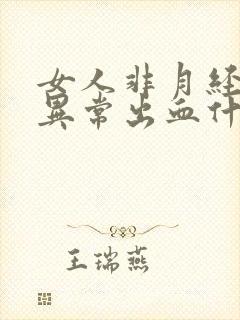 女人非月经
异常出血什
王瑞燕